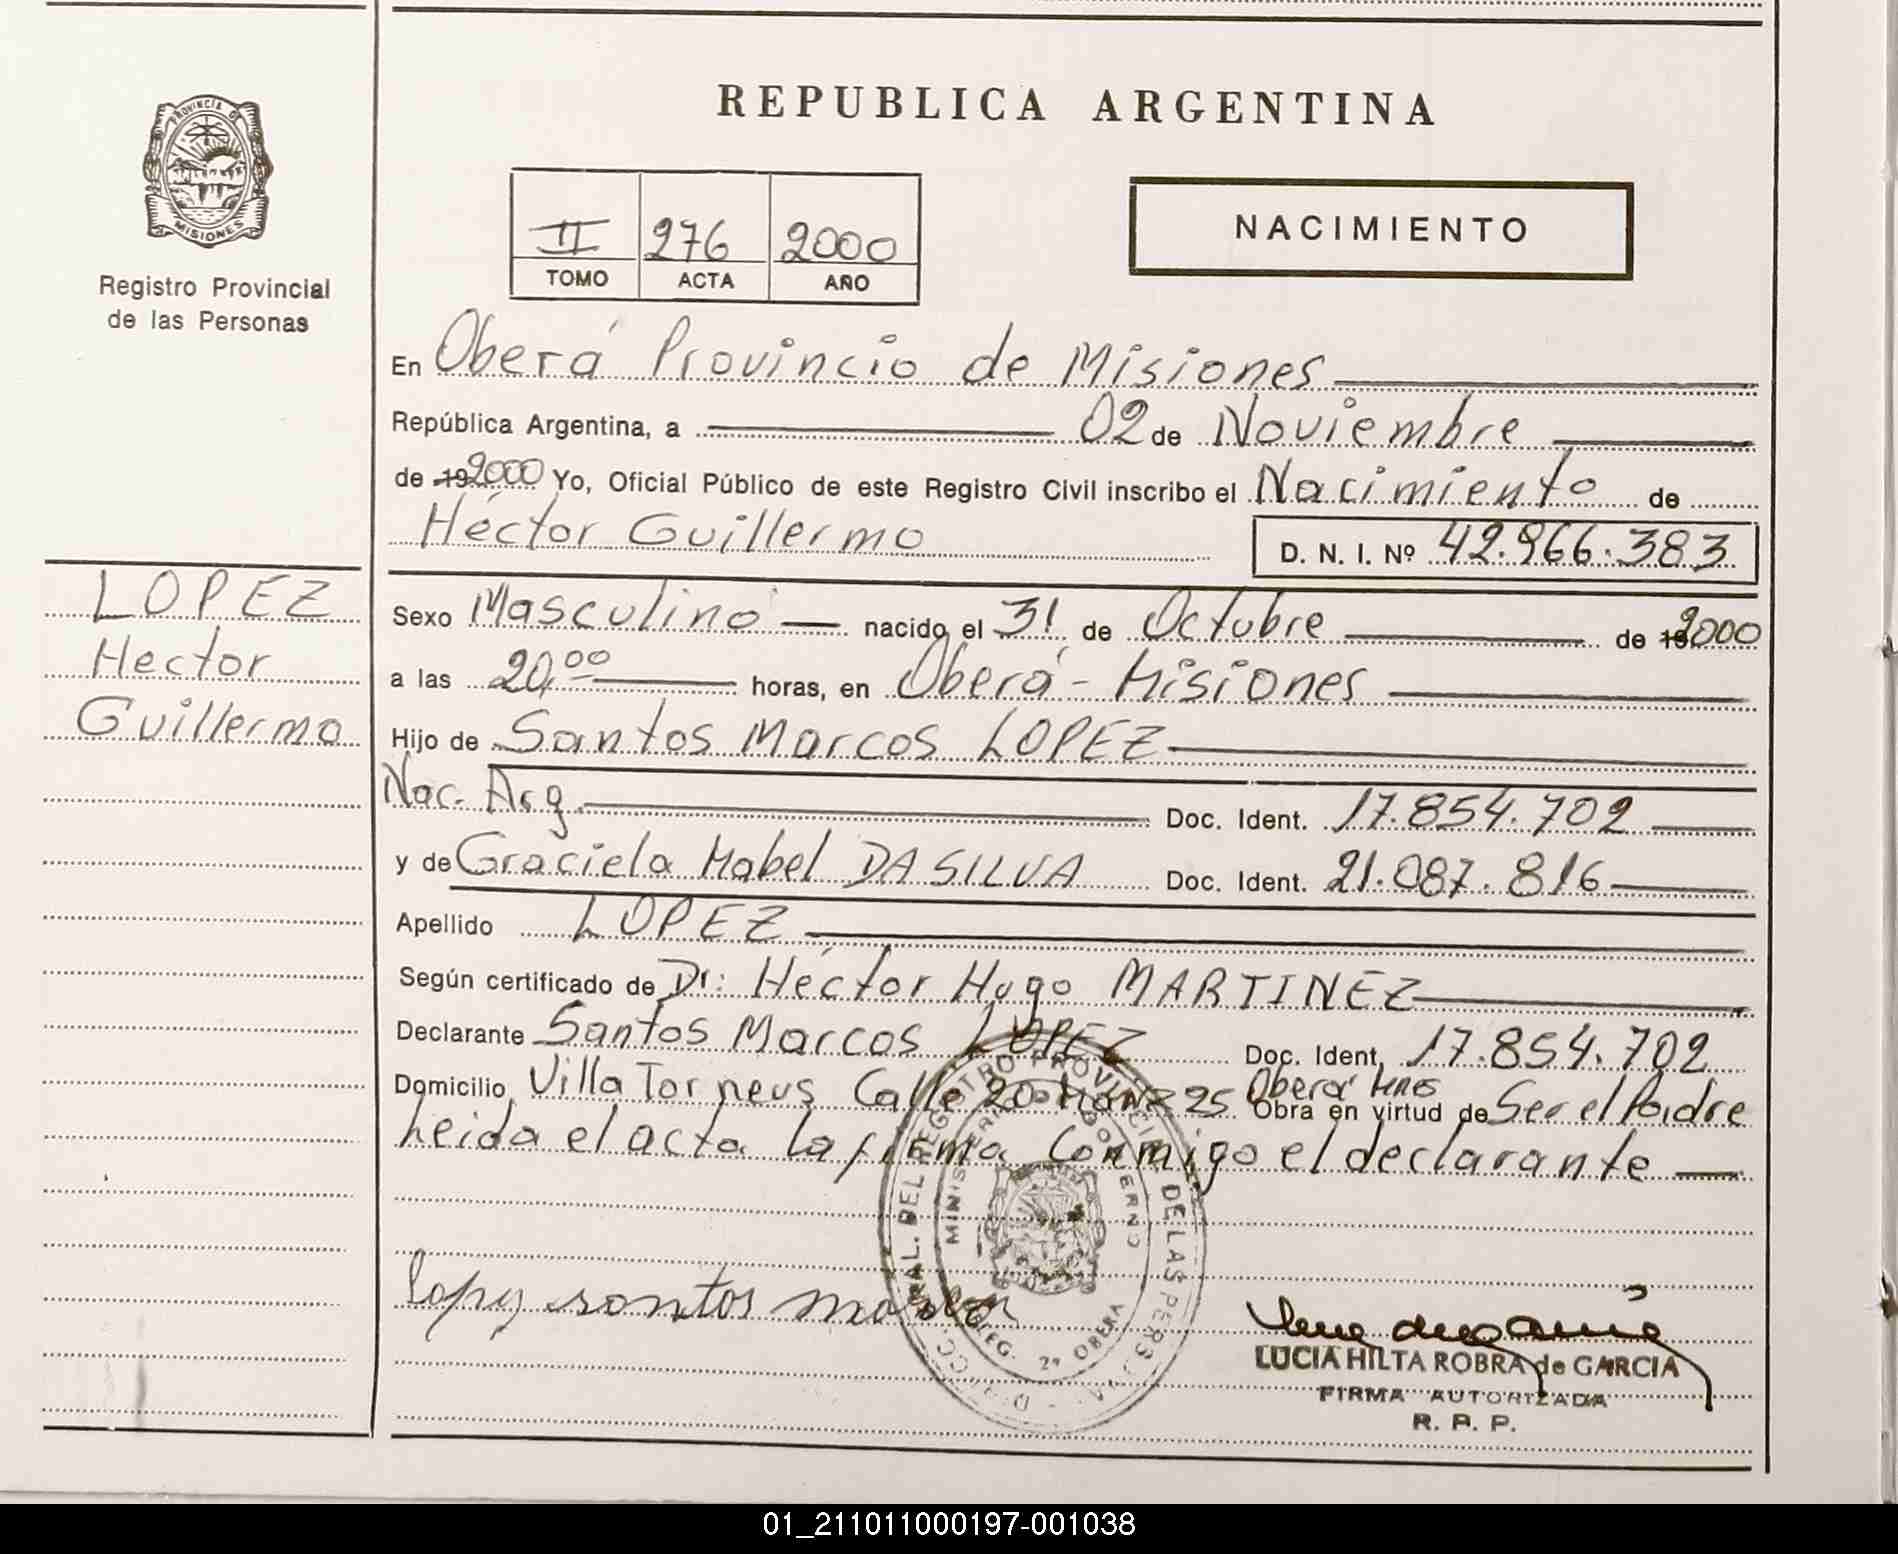 REPUBLICA ARGENTINA
PROVINCIA DE
MISIONES
Registro Provincial
de las Personas
II 276 2000
TOMO ACTA AÑO
NACIMIENTO
En Oberá Provincia de Misiones
República Argentina, a 02 de Noviembre
de 19 2000 Yo, Oficial Público de este Registro Civil inscribo el Nacimiento de
Héctor Guillermo D. N. I. Nº 42.966.383
LOPEZ
Hector
Guillermo
Sexo Masculino nacido el 31 de Octubre de 19 2000
a las 20,00 horas, en Oberá - Misiones
Hijo de Santos Marcos LOPEZ
Nac. Arg. Doc. Ident. 17.854.702
y de Graciela Mabel DA SILVA Doc. Ident. 21.087.816
Apellido LOPEZ
Según certificado de Dr: Héctor Hugo MARTINEZ
Declarante Santos Marcos LOPEZ Doc. Ident. 17.854.702
Domicilio Villa Torneus Calle 20 Manz 25 Oberá Mnes Obra en virtud de Ser el Padre
Leida el acta la firma Conmigo el declarante
REGISTRO PROVINCIAL DE LAS PERS.
MINISTERIO DE GOBIERNO
DELEG. 2ª OBERA
Lopez santos marcos
LUCIA HILTA ROBRA de GARCIA
FIRMA AUTORIZADA
R. P. P.
01_211011000197-001038